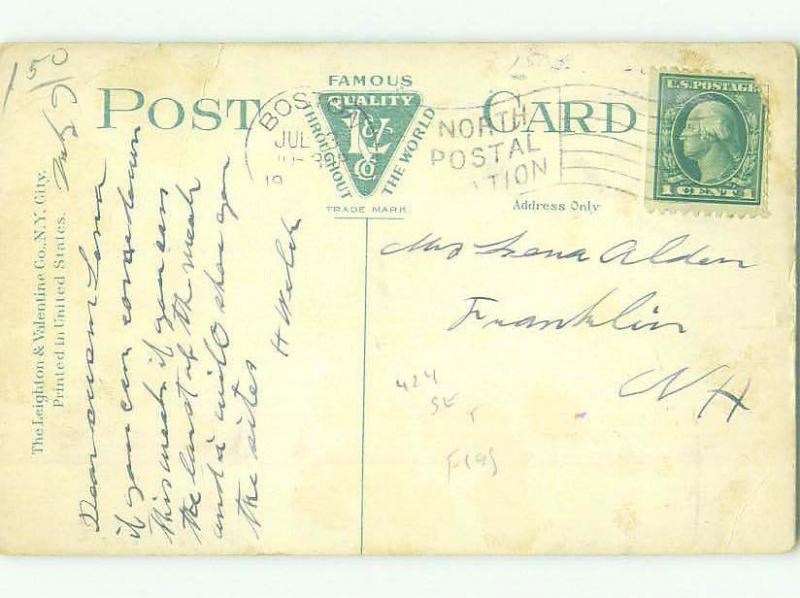 POST CARD
FAMOUS
QUALITY
THROUGHOUT THE WORLD
L&V
Co
TRADE MARK.
Address Only
BOSTON
JUL
19
NORTH
POSTAL
TION
U.S. POSTAGE
1 CENT 1
The Leighton & Valentine Co., N.Y. City.
Printed in United States.
150
Dear Lena
if you can come down
this week if you can
the last of the week
and i will show you
the sites
H Welch
Mrs Lena Alden
Franklin
NH
424
SE